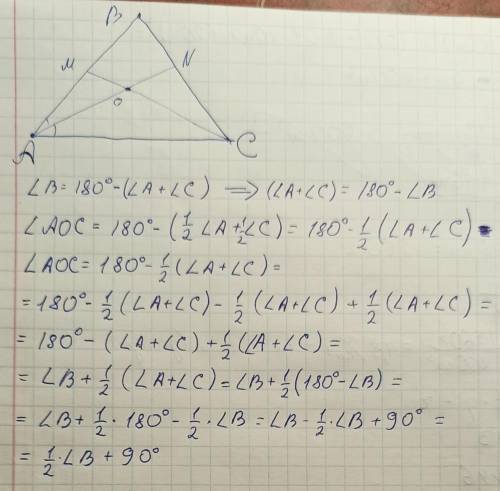 B
M
N
O
A
C
∠B = 180° - (∠A + ∠C) ⟹ (∠A + ∠C) = 180° - ∠B
∠AOC = 180° - (1/2 ∠A + 1/2 ∠C) = 180° - 1/2 (∠A + ∠C)
∠AOC = 180° - 1/2 (∠A + ∠C) =
= 180° - 1/2 (∠A + ∠C) - 1/2 (∠A + ∠C) + 1/2 (∠A + ∠C) =
= 180° - (∠A + ∠C) + 1/2 (∠A + ∠C) =
= ∠B + 1/2 (∠A + ∠C) = ∠B + 1/2 (180° - ∠B) =
= ∠B + 1/2 · 180° - 1/2 · ∠B = ∠B - 1/2 · ∠B + 90° =
= 1/2 · ∠B + 90°